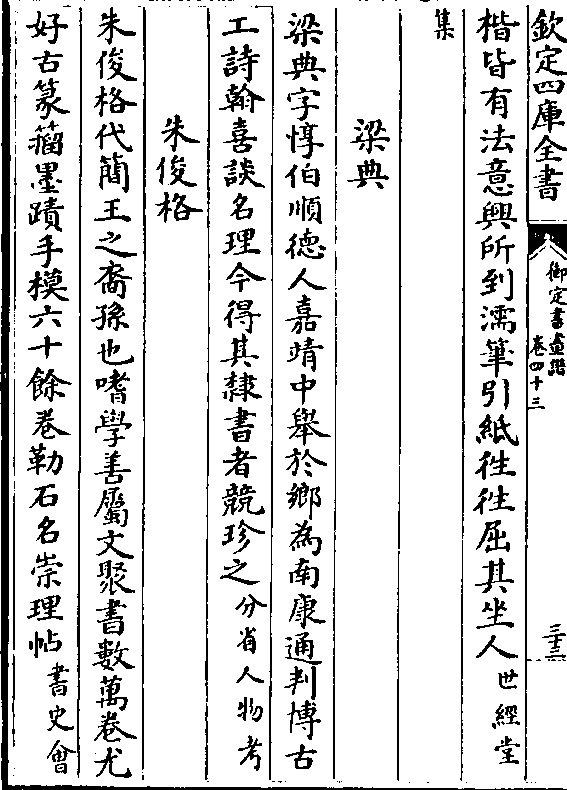 欽定四庫全書
御定書畫譜
卷四十三
三十三
楷皆有法意興所到濡筆引紙徃徃屈其坐人世經堂
集
梁典
梁典字惇伯順德人嘉靖中舉於鄉為南康通判博古
工詩翰喜談名理今得其隸書者競珍之分省人物考
朱俊格
朱俊格代簡王之裔孫也嗜學善屬文聚書數萬卷尤
好古篆籀墨蹟手模六十餘卷勒石名崇理帖書史會